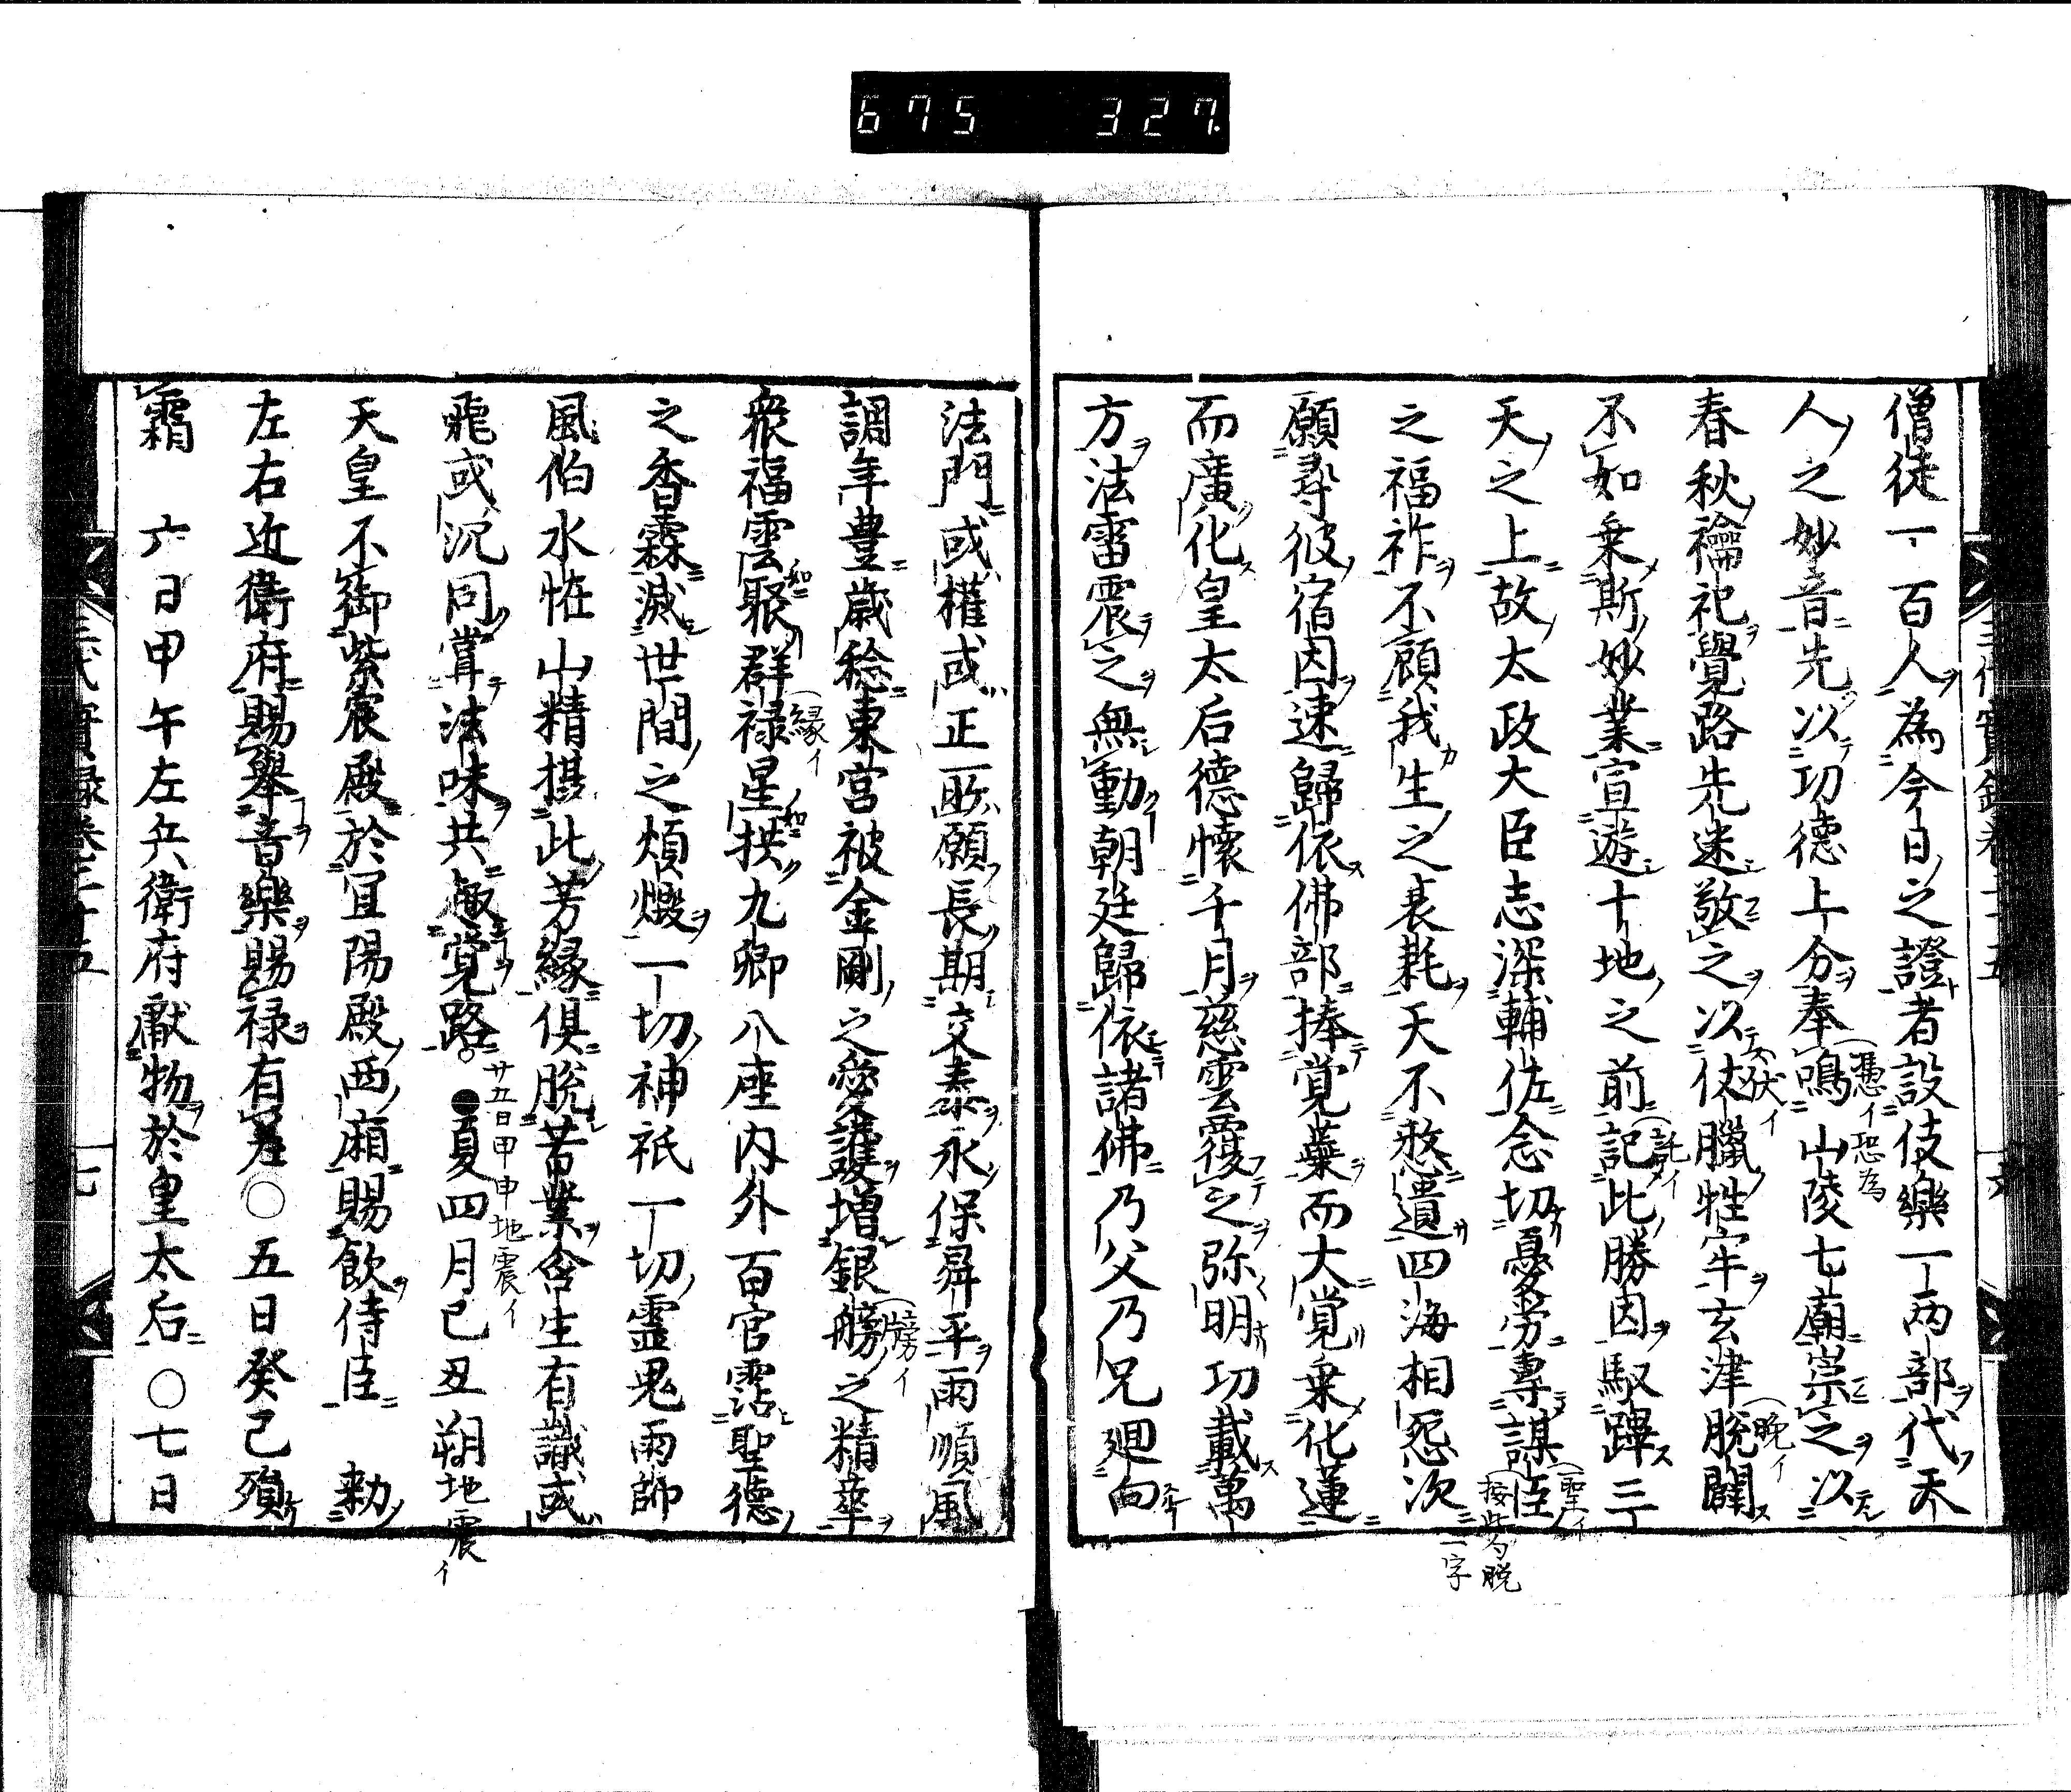 675 327.
僧徒一百人為今日之證者設伎樂一兩部代天
人之妙音先以功德上分奉鳴山陵七廟崇之以
春秋禴祀覺路先迷敬之以伏臘牲牢玄津脫闢
不如乗斯妙業宣遊十地之前記此勝因馭蹕三
天之上故太政大臣志深輔佐念切憂労專謀臣
之福祚不顧我生之衰耗天不憗遺四海相怨次
願尋彼宿因速歸依佛部捧覚蘂而大覚乗化蓮
而廣化皇太后德懐千月慈雲覆之弥明功載萬
方法雷震之無動朝廷歸依諸佛乃父乃兄廻向
憑イ恐為
伏イ
晩イ
託イ
聖イ
按此为脱二字
三代實録巻三十五
六
法門或權或正一欣願長期交泰永保昇平雨順風
調年豊歳稔東宮被金剛之愛護増銀艕之精華
衆福雲聚群禄星拱九卿八座内外百官霑聖德
之香霖滅世間之煩燬一切神祇一切靈鬼雨師
風伯水恠山精摂此芳緣倶脫苦業含生有識或
飛或沉同嘗法味共趣覚路。●夏四月己丑朔地震イ
天皇不御紫宸殿於宜陽殿西廂賜飲侍臣 勅
左右近衛府賜舉音樂賜禄有差○五日癸己殞
霜 六日甲午左兵衛府獻物於皇太后○七日
縁イ
牓イ
廿五日甲申地震イ
三代實録巻三十五
七